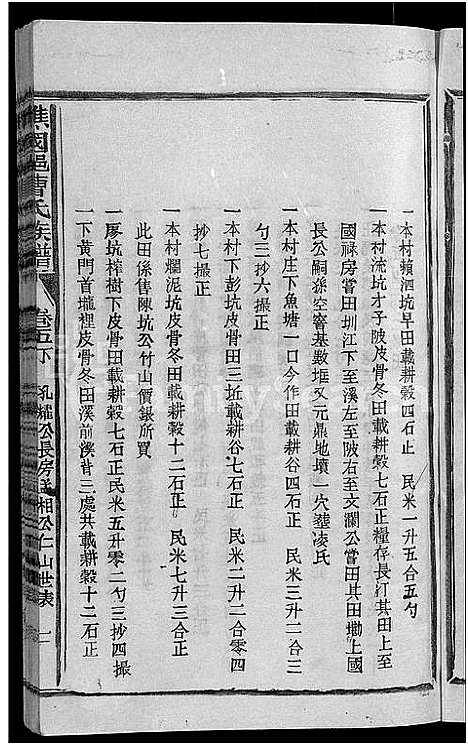 一本村頼泗坑早田載耕穀四石正　民米一升五合五勺
一本村流坑才子陂皮骨冬田載耕穀七石正糧存長汀其田上至
國祿房嘗田圳江下至溪左至陂右至文瀾公嘗田其田墈上國
長公嗣孫空窨基數堆又元鼎地墳一穴葬凌氏
一本村庄下魚塘一口今作田載耕谷四石正　民米三升二合三
勺三抄六撮正
一本村下彭坑皮骨田三坵載耕谷七石正　民米二升二合零四
抄七撮正
一本村爛泥坑皮骨冬田載耕穀十二石正　民米七升三合正
此田係售陳坑公竹山價銀所買
一廖坑榨樹下皮骨田載耕穀七石正民米五升零二勺三抄四撮
一下黃門首壠裡皮骨冬田溪前溪背三處共載耕穀十二石正
譙國邑曹氏族譜　卷五下　孔櫨公長房孟相公仁山世表